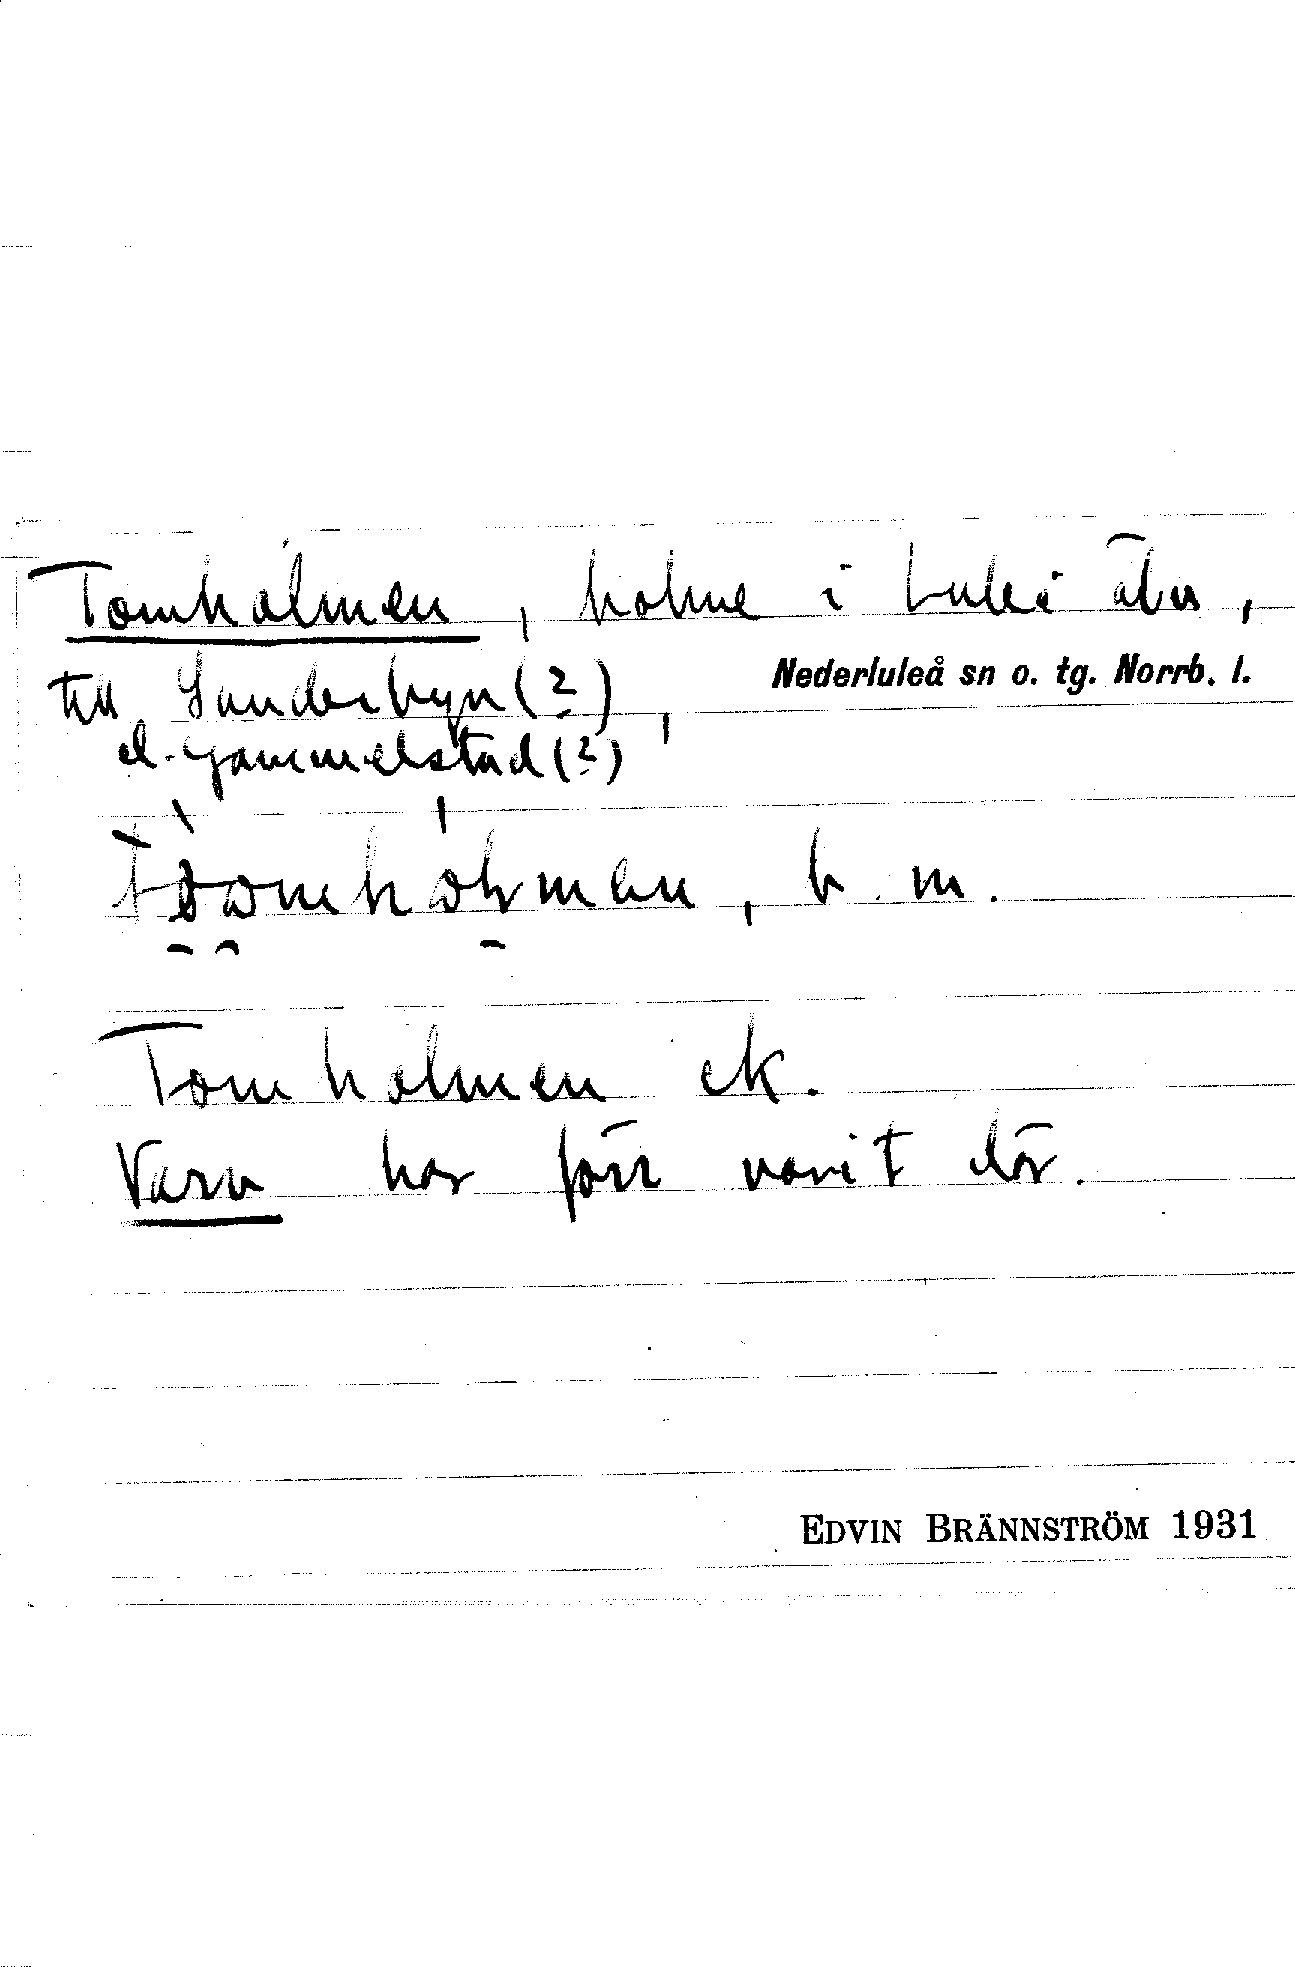 Tomholmen, holme i Lule älv,
Nederluleå sn o. tg. Norrb. l.
till Sunderbyn(?),
el. Gammelstad(?)
, b. m.
Tomholmen ek.
Varv har förr varit där.
EDVIN BRÄNNSTRÖM 1931